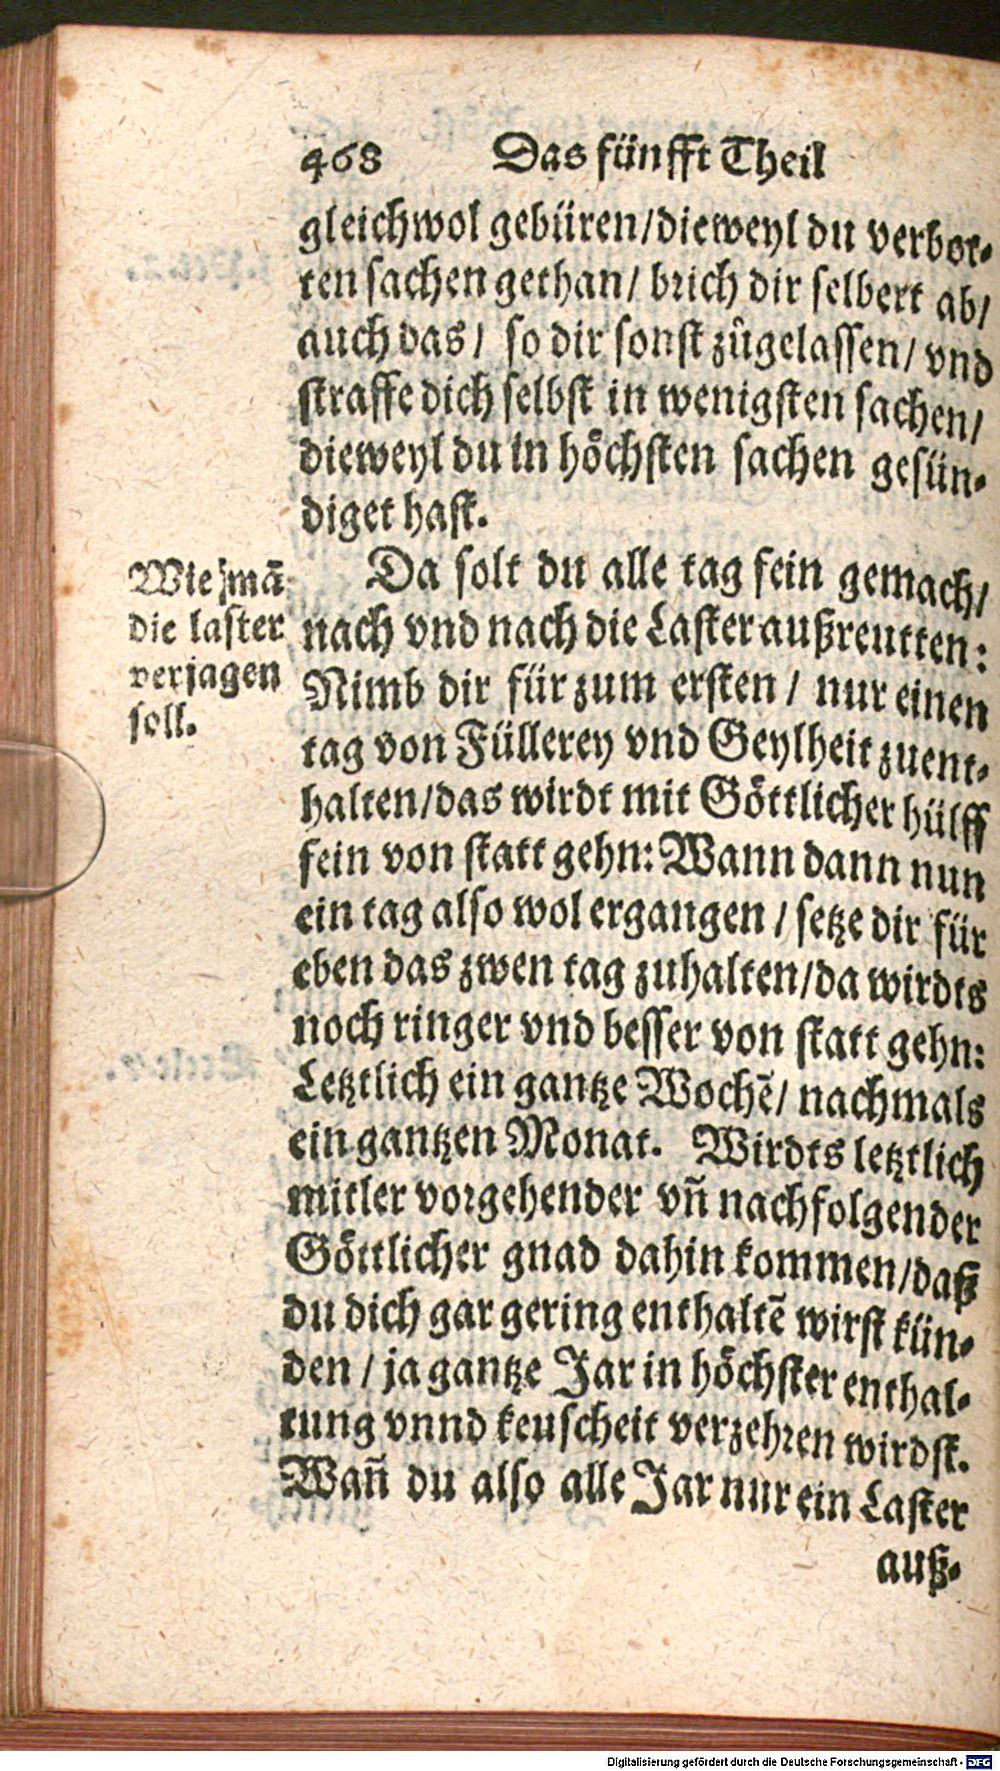 468 Das fünfft Theil
gleichwol gebüren/dieweyl du verbot-
ten sachen gethan/ brich dir selbert ab/
auch das/ so dir sonst zůgelassen/ vnd
straffe dich selbst in wenigsten sachen/
dieweyl du in höchsten sachen gesün-
diget hast.
Da solt du alle tag fein gemach/
nach vnd nach die Laster außreutten:
Nimb dir für zum ersten / nur einen
tag von Füllerey vnd Geylheit zuent-
halten/das wirdt mit Göttlicher hülff
fein von statt gehn: Wann dann nun
ein tag also wol ergangen / setze dir für
eben das zwen tag zuhalten/da wirdts
noch ringer vnd besser von statt gehn:
Letztlich ein gantze Wochẽ/ nachmals
ein gantzen Monat. Wirdts letztlich
mitler vorgehender vñ nachfolgender
Göttlicher gnad dahin kommen/daß
du dich gar gering enthaltẽ wirst kün-
den / ja gantze Jar in höchster enthal-
tung vnnd keuscheit verzehren wirdst.
Wañ du also alle Jar nur ein Laster
auß-
Wie mã
die laster
verjagen
soll.
Digitalisierung gefördert durch die Deutsche Forschungsgemeinschaft - DFG